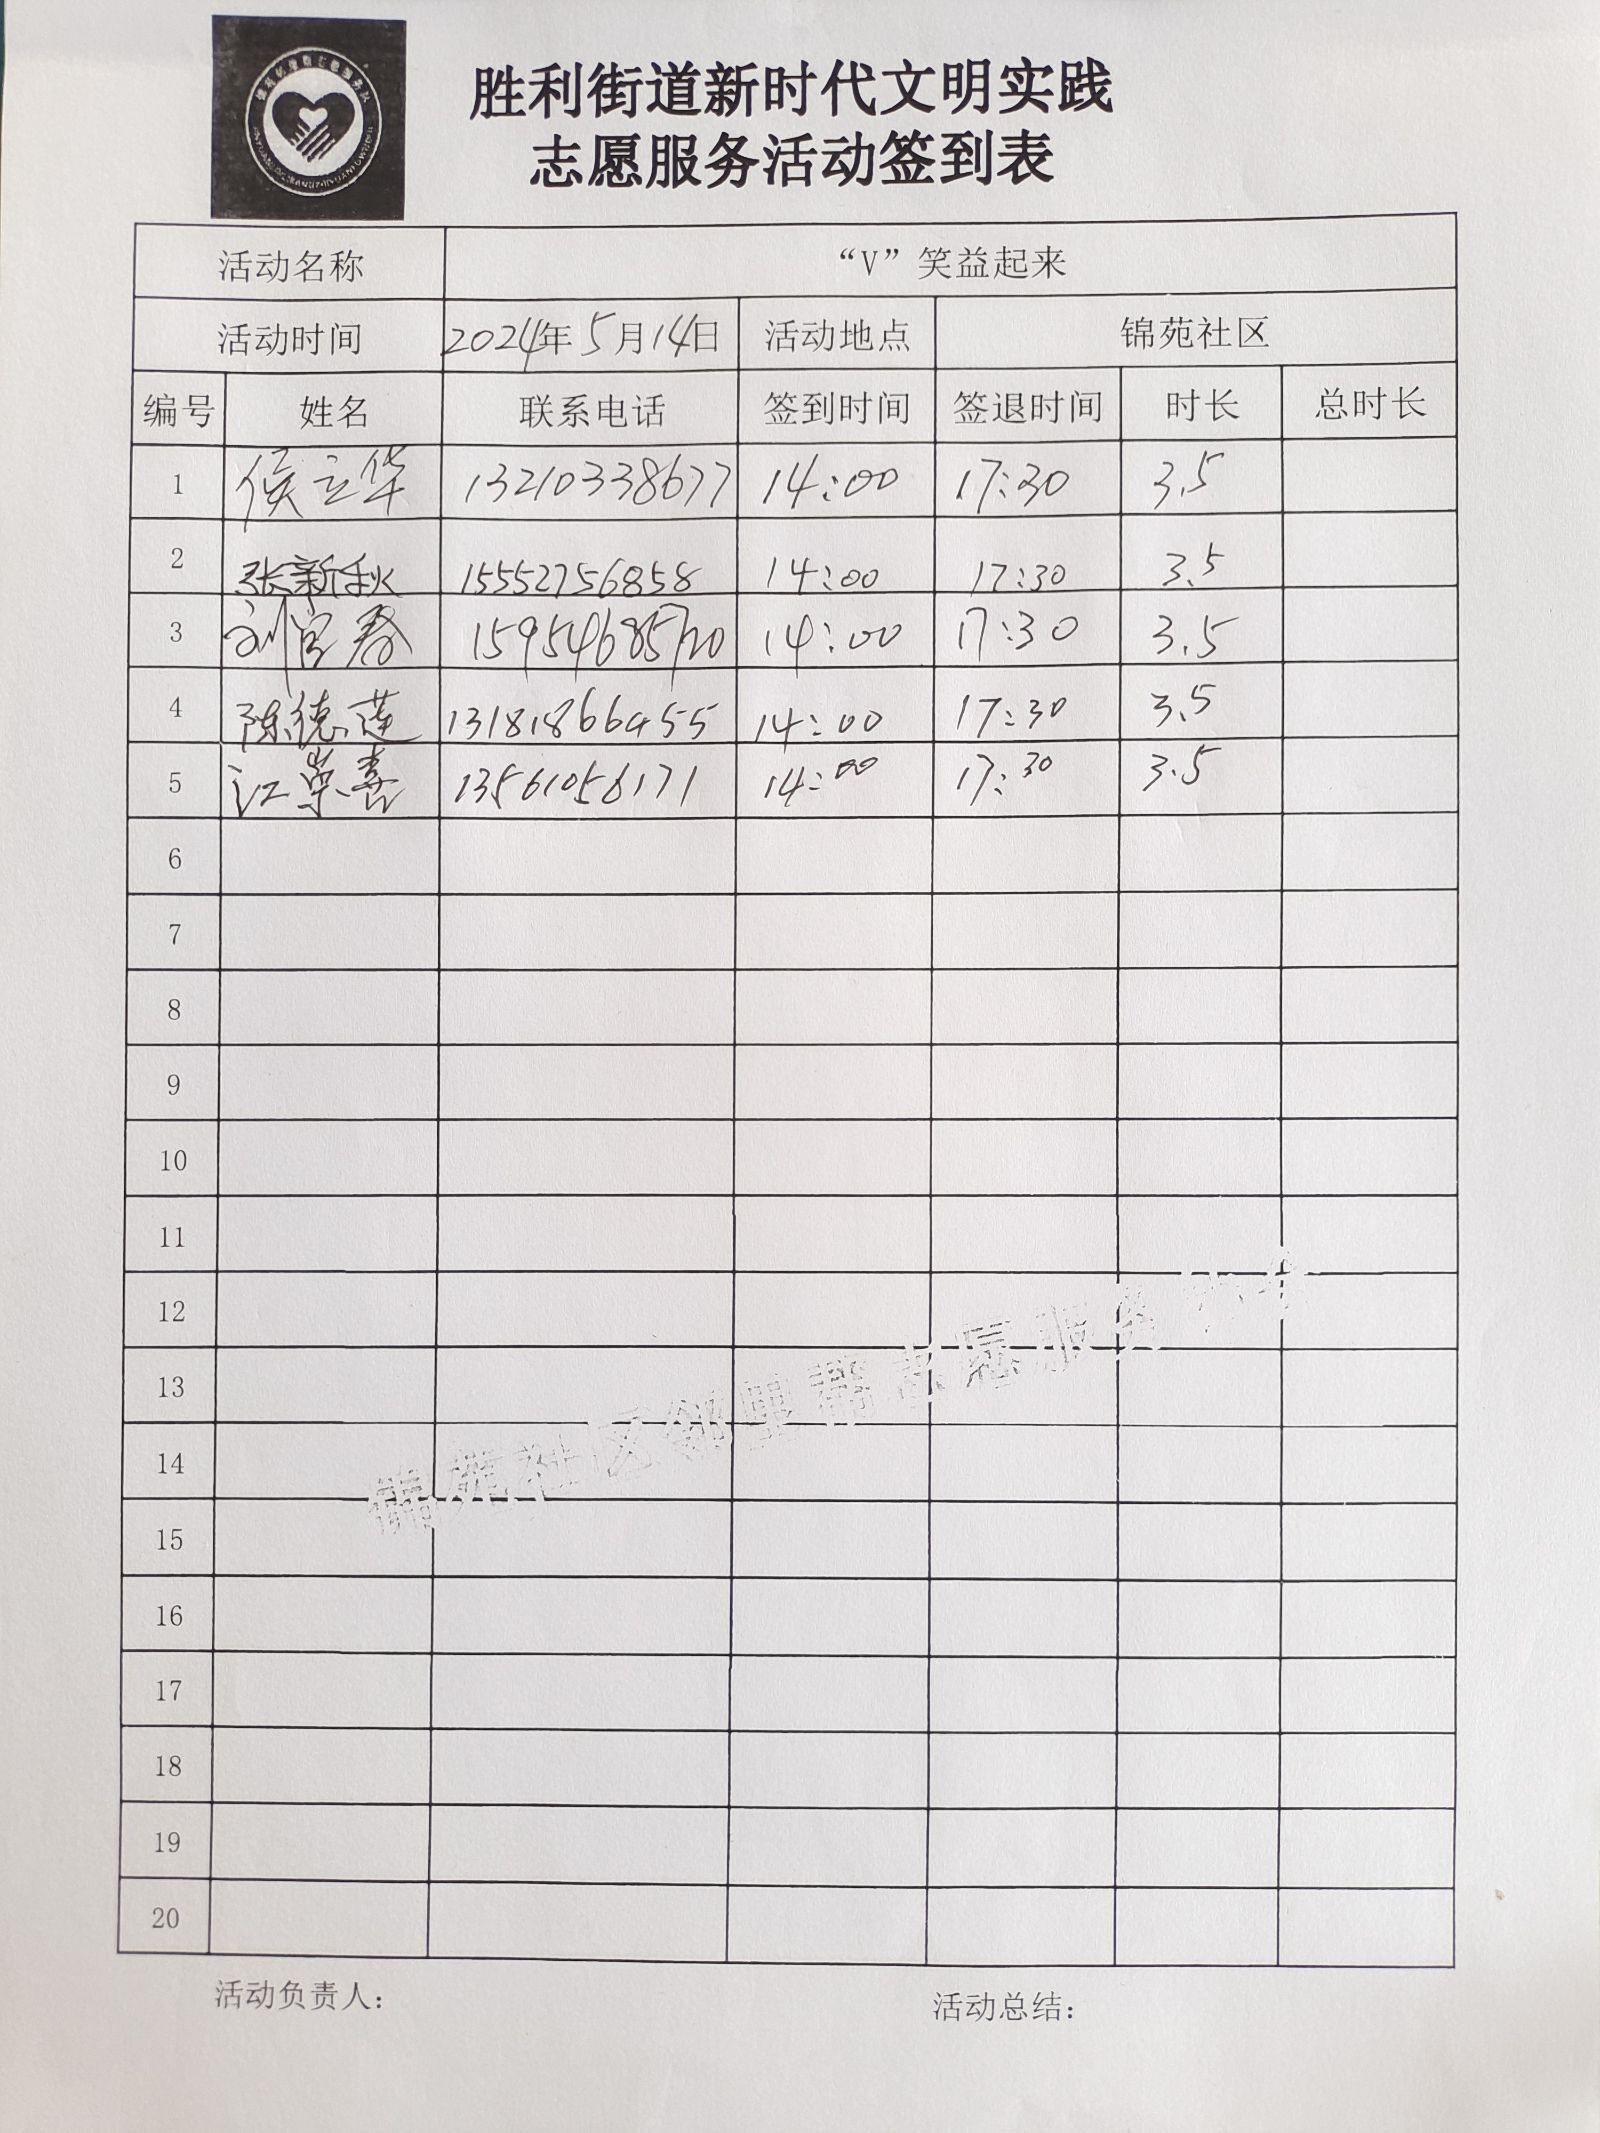 胜利街道新时代文明实践
志愿服务活动签到表
活动名称 “V”笑益起来
活动时间 2024年5月14日 活动地点 锦苑社区
编号 姓名 联系电话 签到时间 签退时间 时长 总时长
1 侯立华 13210338677 14:00 17:30 3.5
2 张新秋 15552756858 14:00 17:30 3.5
3 刘官春 15954685720 14:00 17:30 3.5
4 陈德莲 13181866455 14:00 17:30 3.5
5 江崇喜 13561056171 14:00 17:30 3.5
6
7
8
9
10
11
12
13
14
15
16
17
18
19
20
锦苑社区邻里帮志愿服务
活动负责人: 活动总结: